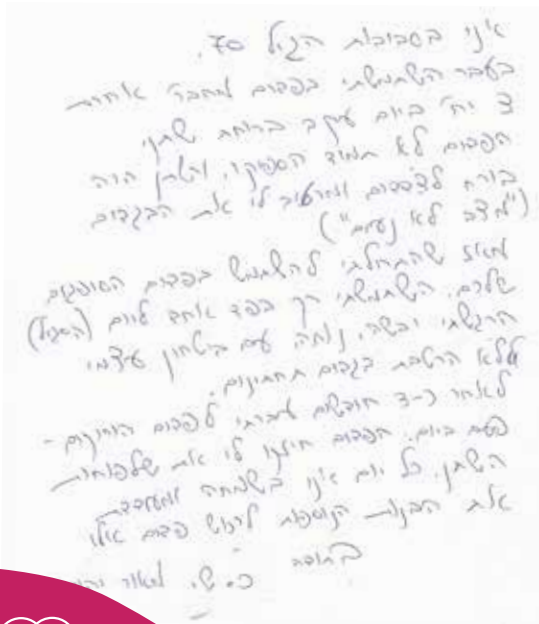 אני בסביבות הגיל 70.
בעבר השתמשתי בפדים מחברה אחרת
3 יח' ביום עקב בריחת שתן
הפדים לא תמיד הספיקו, והשתן היה
בורח לצדדים ומרטיב לי את הבגדים
("מצב לא נעים")
מאז שהתחלתי להשתמש בפדים הסופגים
שלכם, השתמשתי רק בפד אחד ליום (הסגול)
הרגשתי יבשה, נוחה עם ביטחון עצמי
ללא הרטבת בגדים תחתונים.
לאחר כ-3 חודשים עברתי לפדים הירוקים -
פעם ביום. הפדים חילצו לי את שלפוחית
השתן. כל יום אני בשמחה ומעודדת
את הבנות הנוספות לרכוש פדים אילו
בתודה
כ.ש. מאור